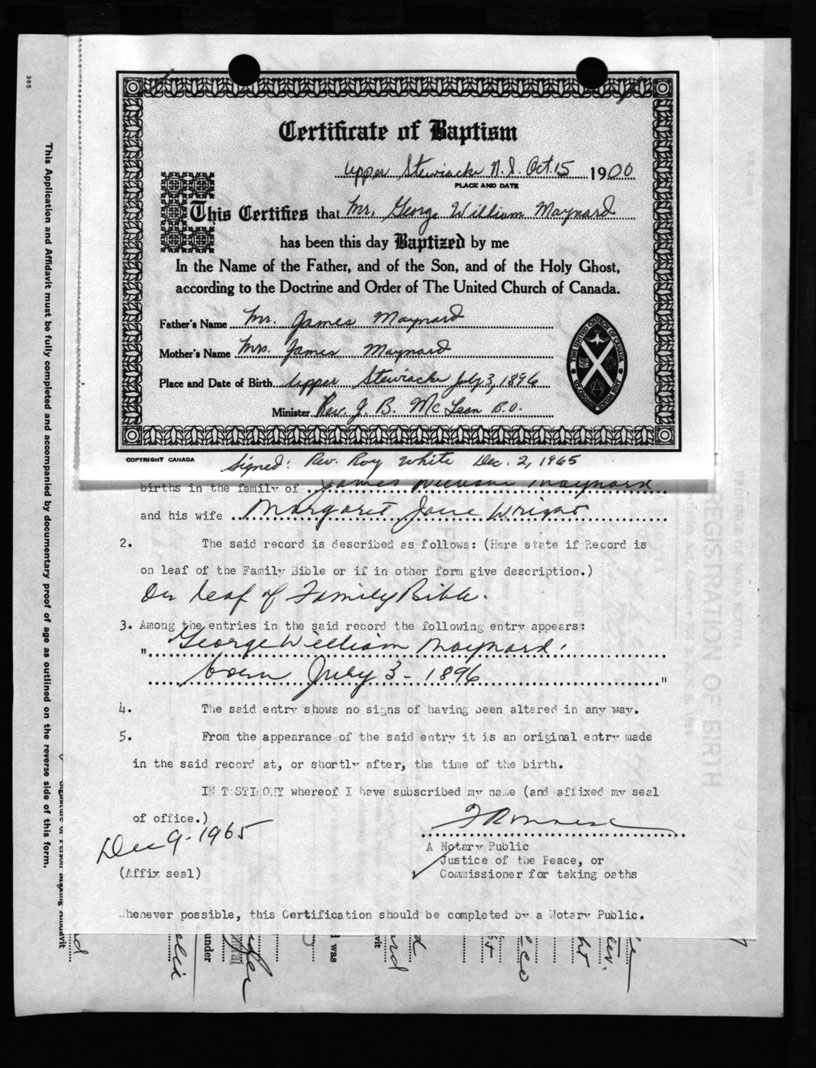 Certificate of Baptism
Upper Stewiacke N.S. Oct. 15 1900
PLACE AND DATE
This Certifies that Mr. George William Maynard
has been this day Baptized by me
In the Name of the Father, and of the Son, and of the Holy Ghost,
according to the Doctrine and Order of The United Church of Canada.
Father's Name Mr. James Maynard
Mother's Name Mrs. James Maynard
Place and Date of Birth Upper Stewiacke July 3, 1896
Minister Rev. J. B. McLean B.D.
COPYRIGHT CANADA
Signed: Rev. Roy White Dec. 2, 1965
births in the family of James William Maynard
and his wife Margaret Jane Wright
2. The said record is described as follows: (Here state if Record is
on leaf of the Family Bible or if in other form give description.)
On leaf of Family Bible.
3. Among the entries in the said record the following entry appears:
" George William Maynard,
born July 3 - 1896 "
4. The said entry shows no signs of having been altered in any way.
5. From the appearance of the said entry it is an original entry made
in the said record at, or shortly after, the time of the birth.
IN TESTIMONY whereof I have subscribed my name (and affixed my seal
of office.)
Dec 9 - 1965
A Notary Public
Justice of the Peace, or
(Affix seal)
Commissioner for taking oaths
Whenever possible, this Certification should be completed by a Notary Public.
This Application and Affidavit must be fully completed and accompanied by documentary proof of age as outlined on the reverse side of this form.
REGISTRATION OF BIRTH
under
I was